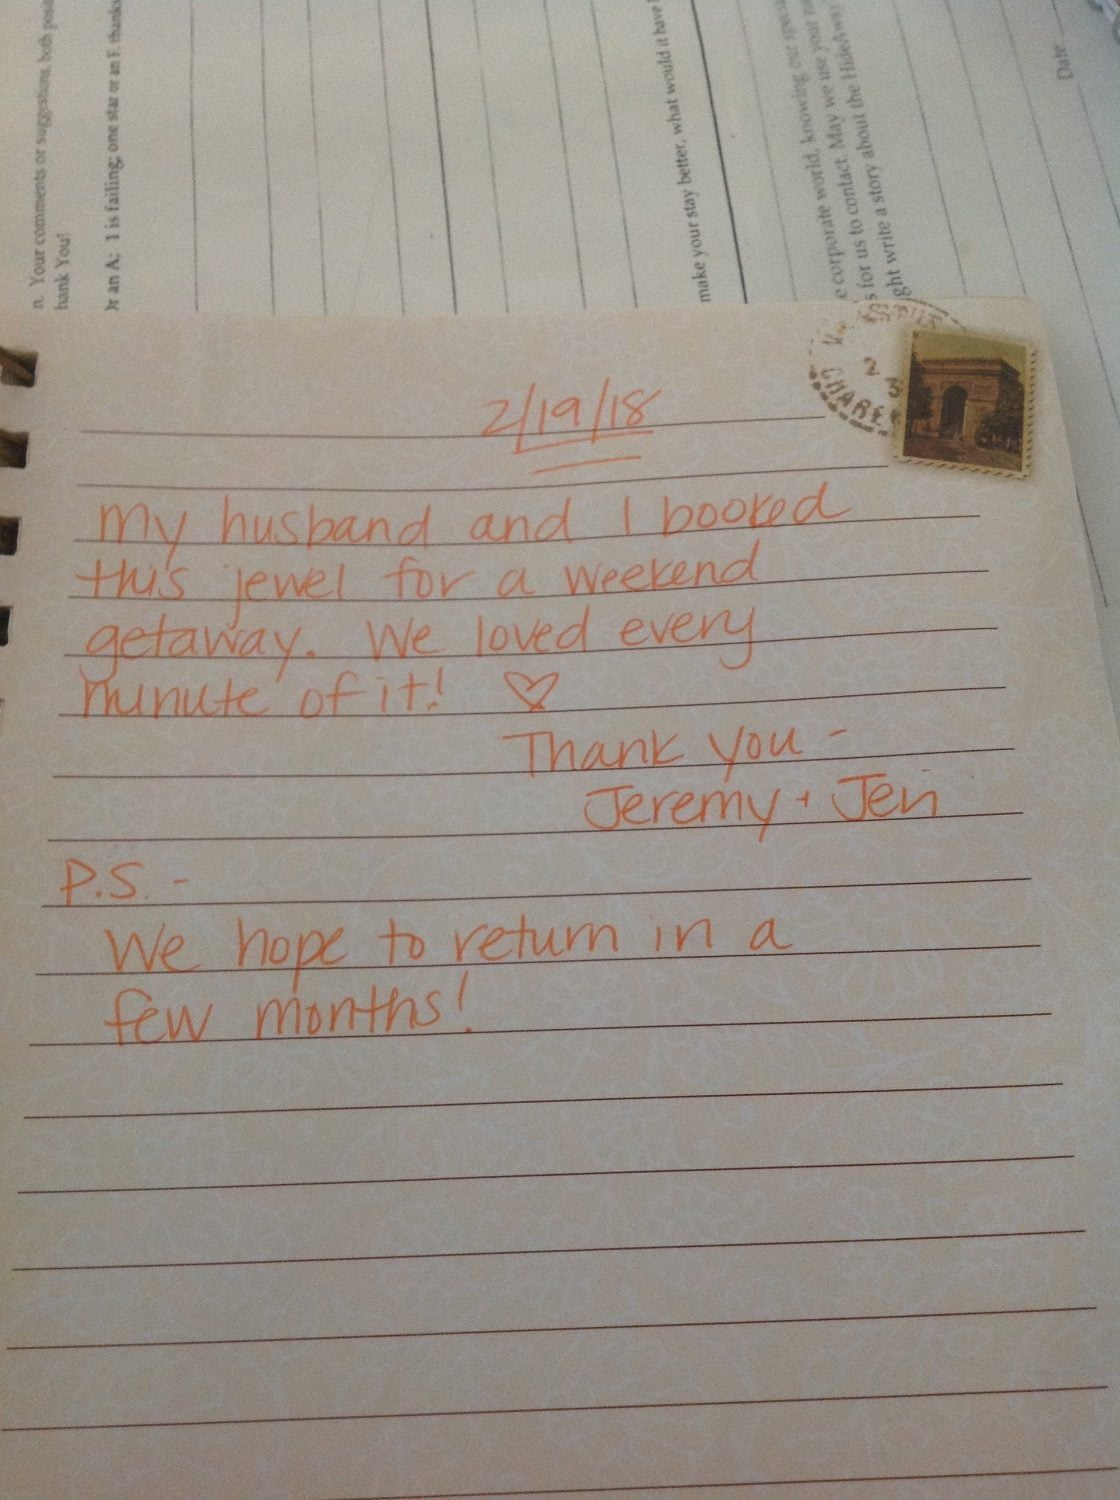 n. Your comments or suggestions, both
hank You!
Or an A; 1 is failing; one star or an F, thanks
make your stay better, what would it have
e corporate world, knowing our
s for us to contact. May we use your
ght write a story about the HideAway
Date
2
3
CHARE
2/19/18
My husband and I booked
this jewel for a weekend
getaway. We loved every
minute of it! ♡
Thank you -
Jeremy + Jen
P.S. -
We hope to return in a
few months!